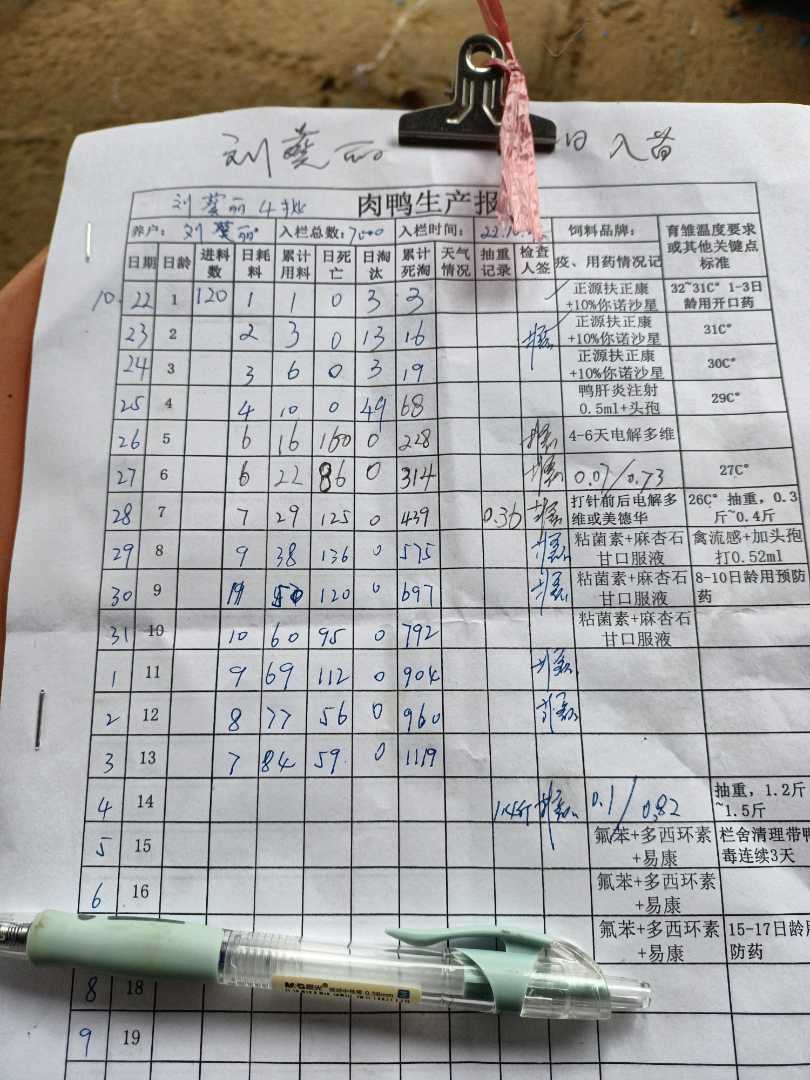 刘蔓丽 日入苗
刘蔓丽4批 肉鸭生产报
养户: 刘蔓丽 入栏总数: 7000 入栏时间: 22.10. 饲料品牌: 育雏温度要求或其他关键点标准
日期 日龄 进料数 日耗料 累计用料 日死亡 日淘汰 累计死淘 天气情况 抽重记录 检查人签 疫、用药情况记
10. 22 1 120 1 1 0 3 3 正源扶正康+10%你诺沙星 32~31C° 1-3日龄用开口药
23 2 2 3 0 13 16 正源扶正康+10%你诺沙星 31C°
24 3 3 6 0 3 19 正源扶正康+10%你诺沙星 30C°
25 4 4 10 0 49 68 鸭肝炎注射0.5ml+头孢 29C°
26 5 6 16 160 0 228 4-6天电解多维
27 6 6 22 86 0 314 0.07/0.73 27C°
28 7 7 29 125 0 439 0.36 打针前后电解多维或美德华 26C° 抽重, 0.3斤~0.4斤
29 8 9 38 136 0 575 粘菌素+麻杏石甘口服液 禽流感+加头孢打0.52ml
30 9 120 0 697 粘菌素+麻杏石甘口服液 8-10日龄用预防药
31 10 10 60 95 0 792 粘菌素+麻杏石甘口服液
1 11 9 69 112 0 904
2 12 8 77 56 0 960
3 13 7 84 59 0 1119
4 14 0.1/0.82 抽重, 1.2斤~1.5斤
5 15 氟苯+多西环素+易康 栏舍清理带鸭毒连续3天
6 16 氟苯+多西环素+易康
氟苯+多西环素+易康 15-17日龄用防药
M&G晨光
8 18
9 19